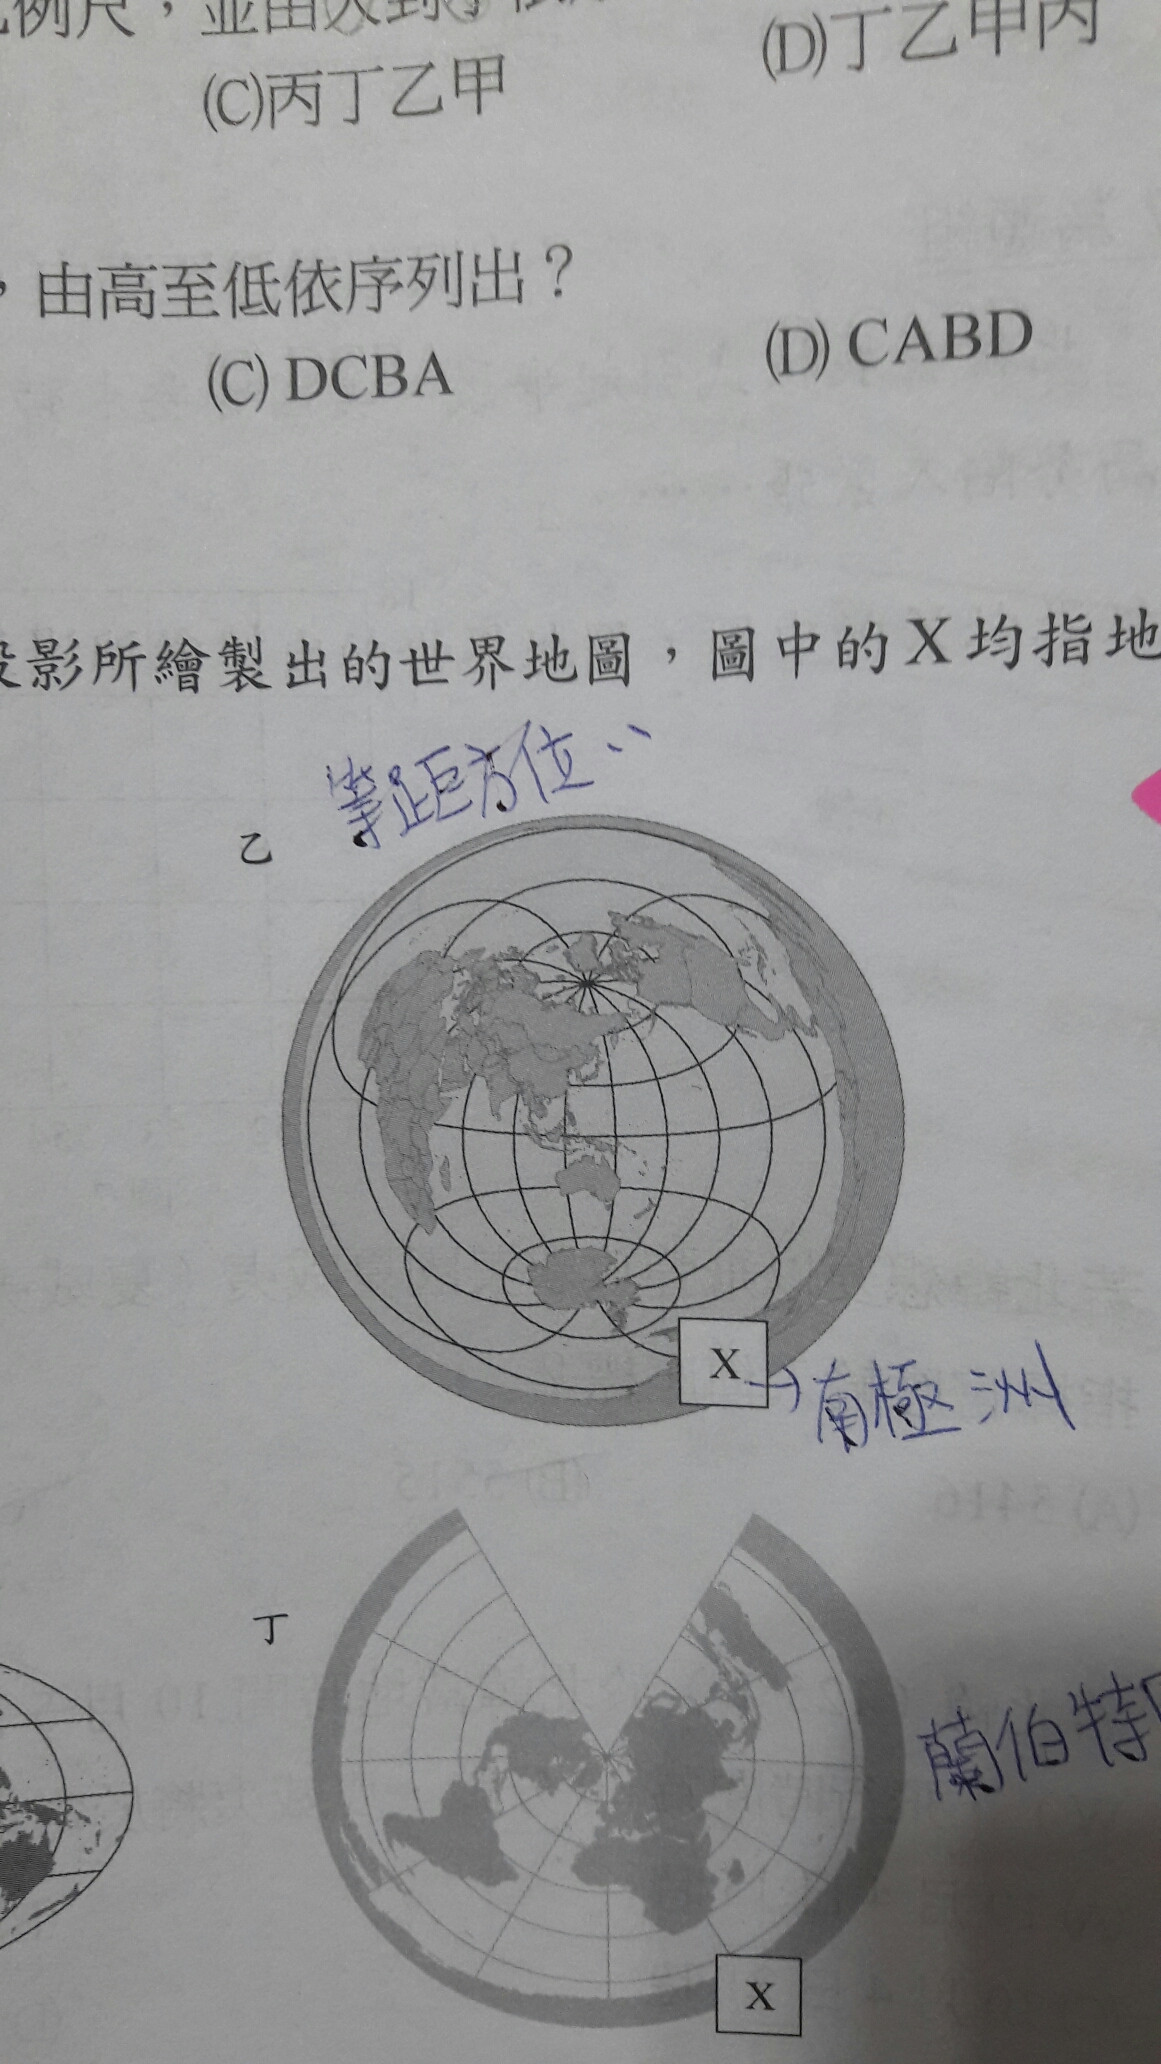 例尺，並由大到小依
(C)丙丁乙甲 (D)丁乙甲丙
，由高至低依序列出？
(C) DCBA (D) CABD
投影所繪製出的世界地圖，圖中的X均指地
等距方位
乙
X
→南極洲
丁
蘭伯特
X